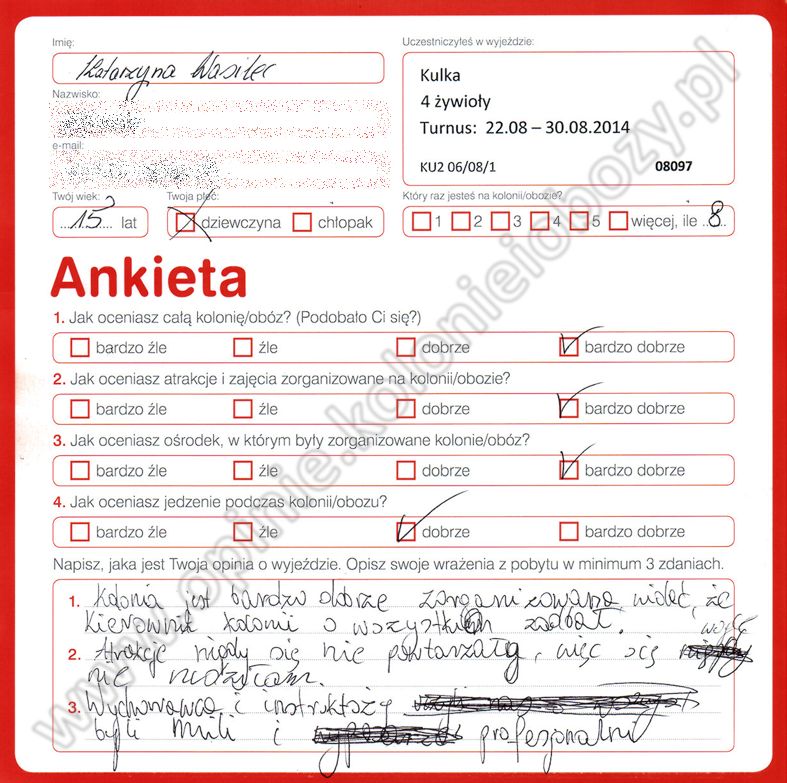 Imię:
Uczestniczyłeś w wyjeździe:
Katarzyna Wasilec
Kulka
4 żywioły
Turnus: 22.08 – 30.08.2014
KU2 06/08/1 08097
Nazwisko:
e-mail:
Twój wiek:
Twoja płeć:
Który raz jesteś na kolonii/obozie?
15 lat
dziewczyna chłopak
1 2 3 4 5 więcej, ile 8
Ankieta
1. Jak oceniasz całą kolonię/obóz? (Podobało Ci się?)
bardzo źle źle dobrze bardzo dobrze
2. Jak oceniasz atrakcje i zajęcia zorganizowane na kolonii/obozie?
bardzo źle źle dobrze bardzo dobrze
3. Jak oceniasz ośrodek, w którym były zorganizowane kolonie/obóz?
bardzo źle źle dobrze bardzo dobrze
4. Jak oceniasz jedzenie podczas kolonii/obozu?
bardzo źle źle dobrze bardzo dobrze
Napisz, jaka jest Twoja opinia o wyjeździe. Opisz swoje wrażenia z pobytu w minimum 3 zdaniach.
1. Kolonia jest bardzo dobrze zorganizowana, widać, że
kierownik kolonii o wszystko zadbał.
2. Atrakcje nigdy się nie powtarzały, więc się wcale
nie nudziłam.
3. Wychowawca i instruktorzy
byli mili i profesjonalni
www.opinie.kolonieiobozy.pl